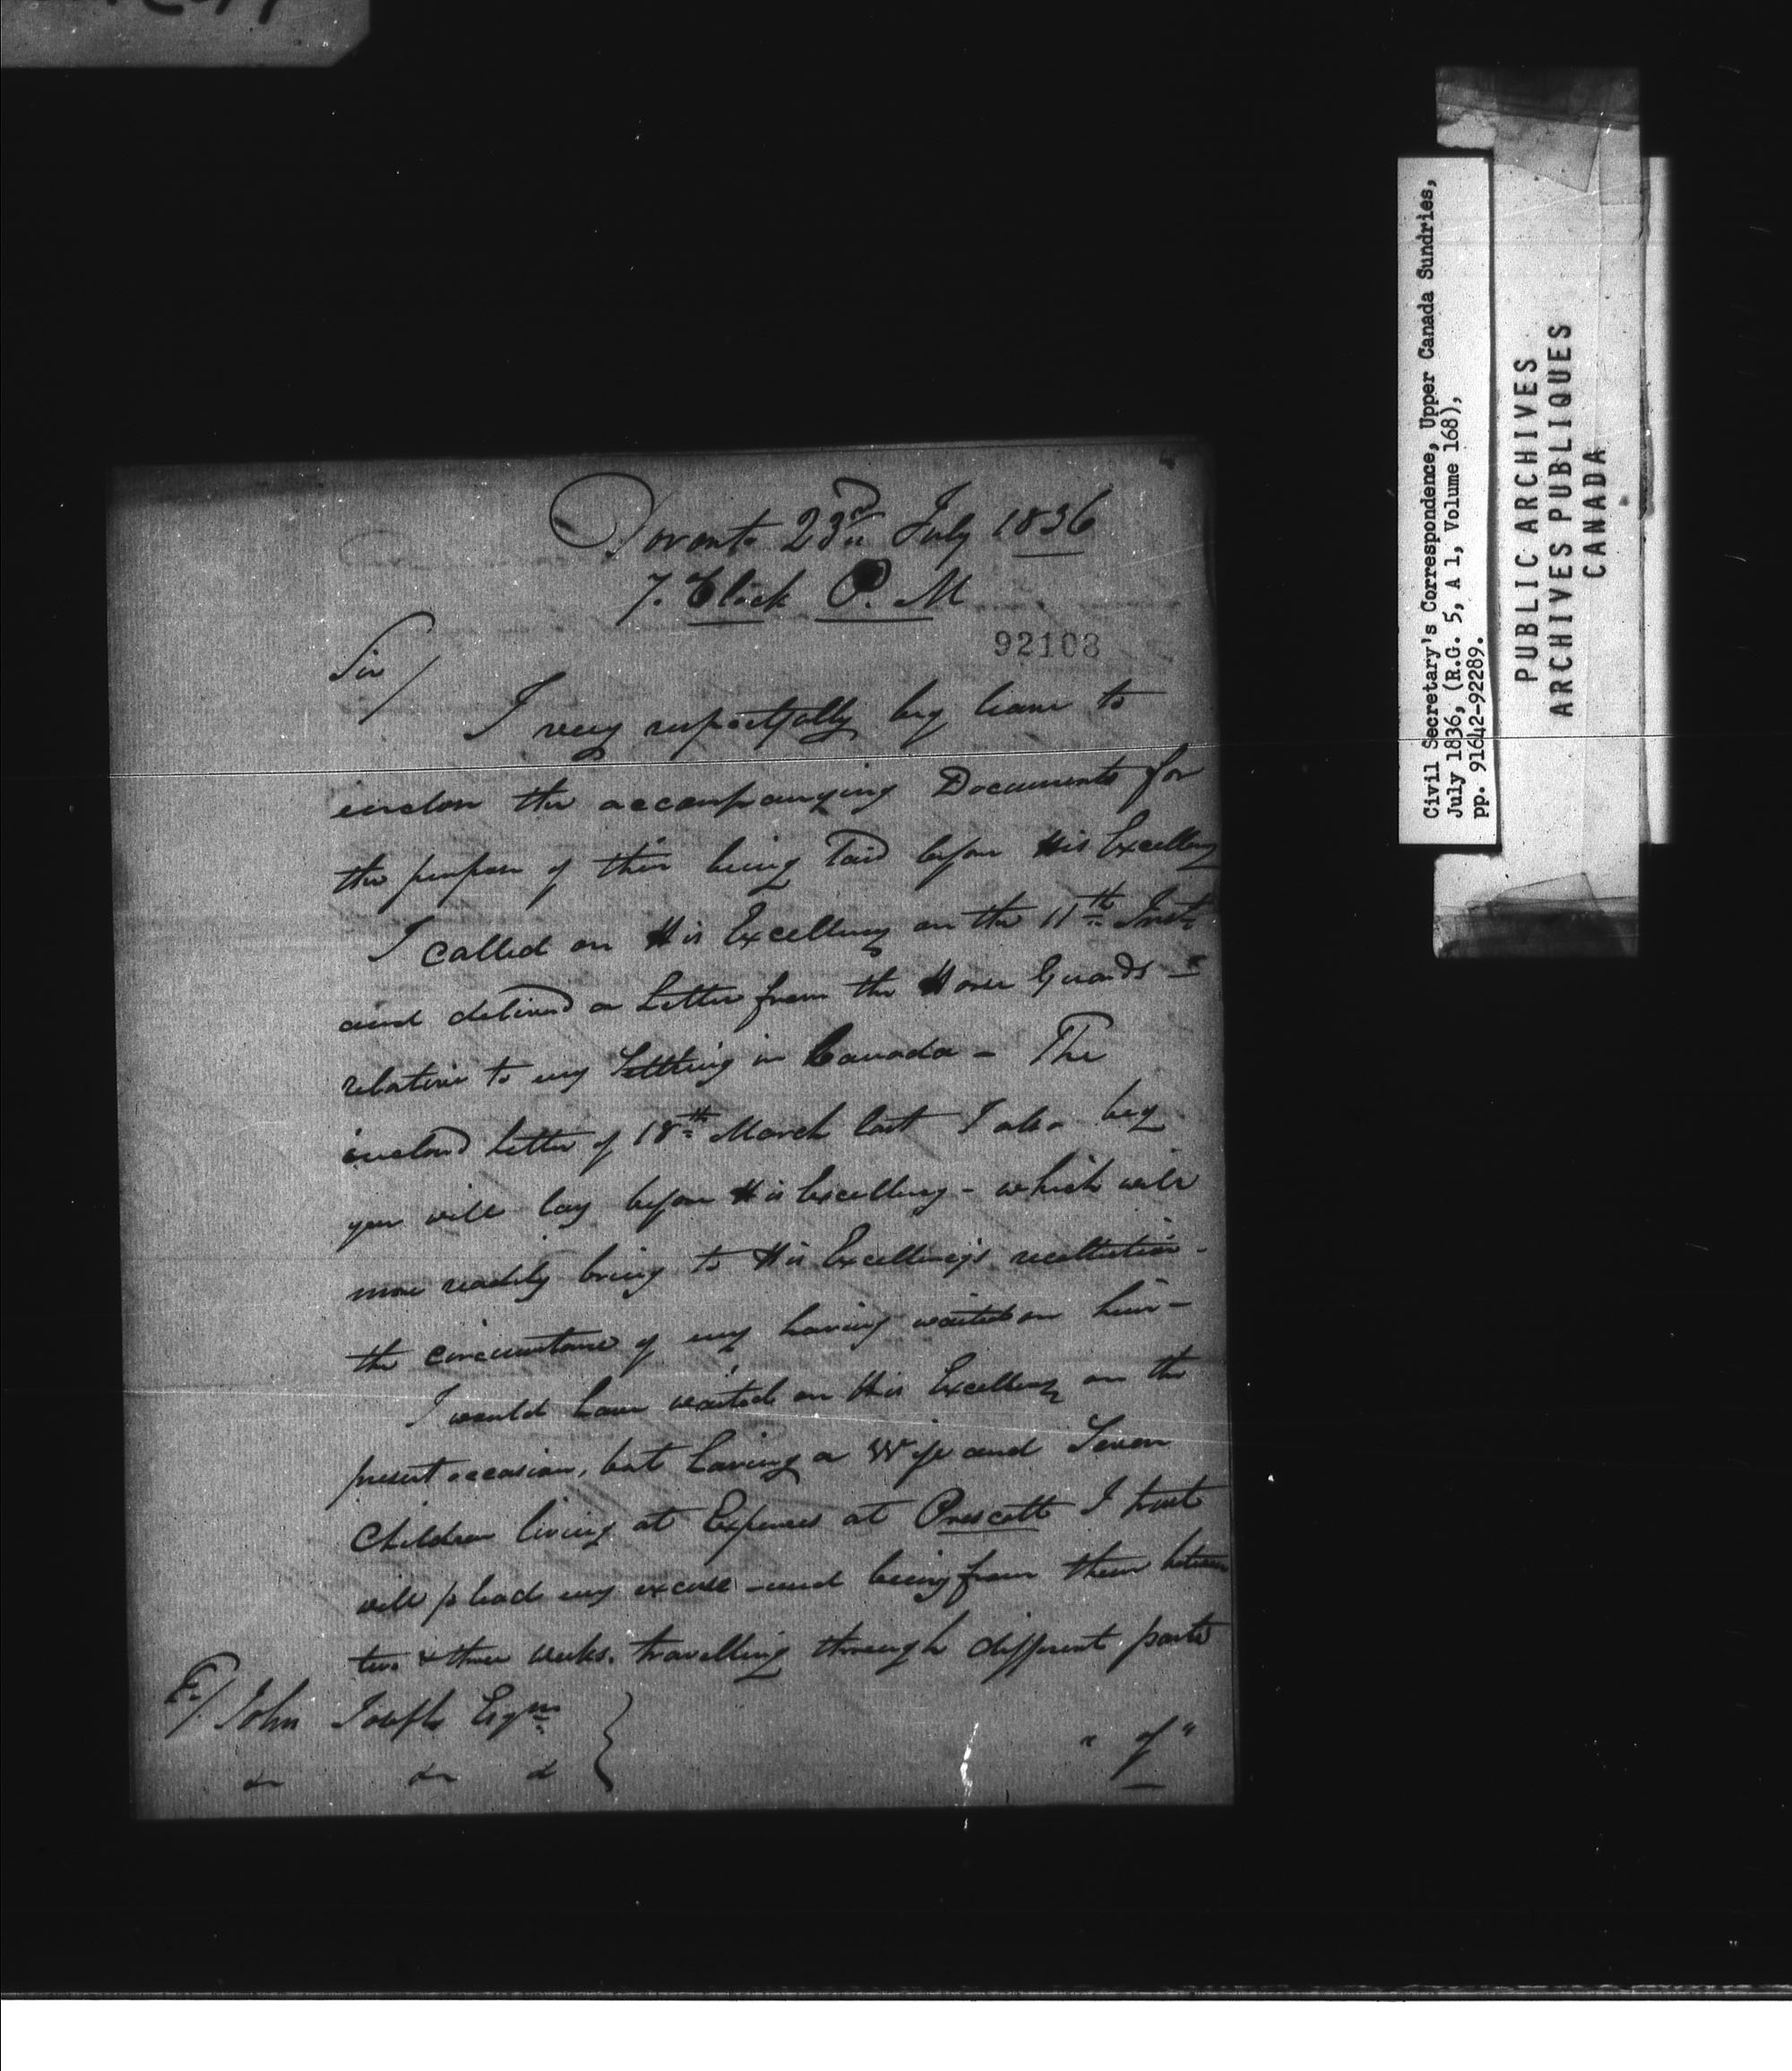 Toronto 23rd July 1836
7. Clock P. M
92108
Sir/
I very respectfully beg leave to
enclose the accompanying Documents for
the purpose of their being laid before His Excellency
I called on His Excellency on the 11th Inst
and delivered a Letter from the Horse Guards
relative to my Settling in Canada - The
enclosed Letter of 18th March last I also beg
you will lay before His Excellency - which will
more readily bring to His Excellency's recollection -
the circumstance of my having waited on him -
I would have waited on His Excellency on the
present occasion, but having a Wife and Seven
Children living at Expenses at Prescott I trust
will plead my excuse - and being from them between
two & three weeks. travelling through different parts
John Joseph Esqre
" of "
Civil Secretary's Correspondence, Upper Canada Sundries,
July 1836, (R.G. 5, A 1, Volume 168),
pp. 91642-92289.
PUBLIC ARCHIVES
ARCHIVES PUBLIQUES
CANADA